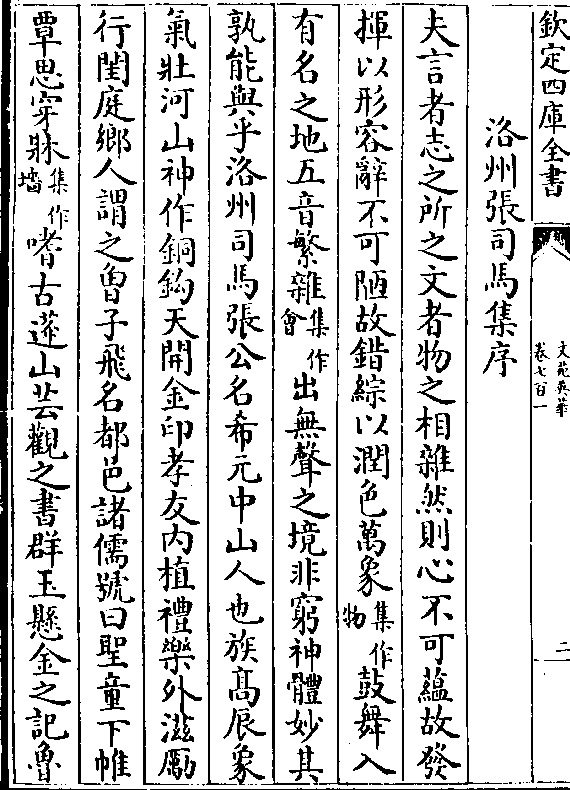 欽定四庫全書
文苑英華
卷七百一
二
洛州張司馬集序
夫言者志之所之文者物之相雜然則心不可蘊故發
揮以形容辭不可陋故錯綜以潤色萬象集作物鼓舞入
有名之地五音繁雜集作會出無聲之境非窮神體妙其
孰能與乎洛州司馬張公名希元中山人也族高辰象
氣壯河山神作銅鈎天開金印孝友内植禮樂外滋勵
行閨庭鄉人謂之曽子飛名都邑諸儒號曰聖童下帷
覃思穿牀集作墻嗜古蓬山芸觀之書群玉懸金之記魯